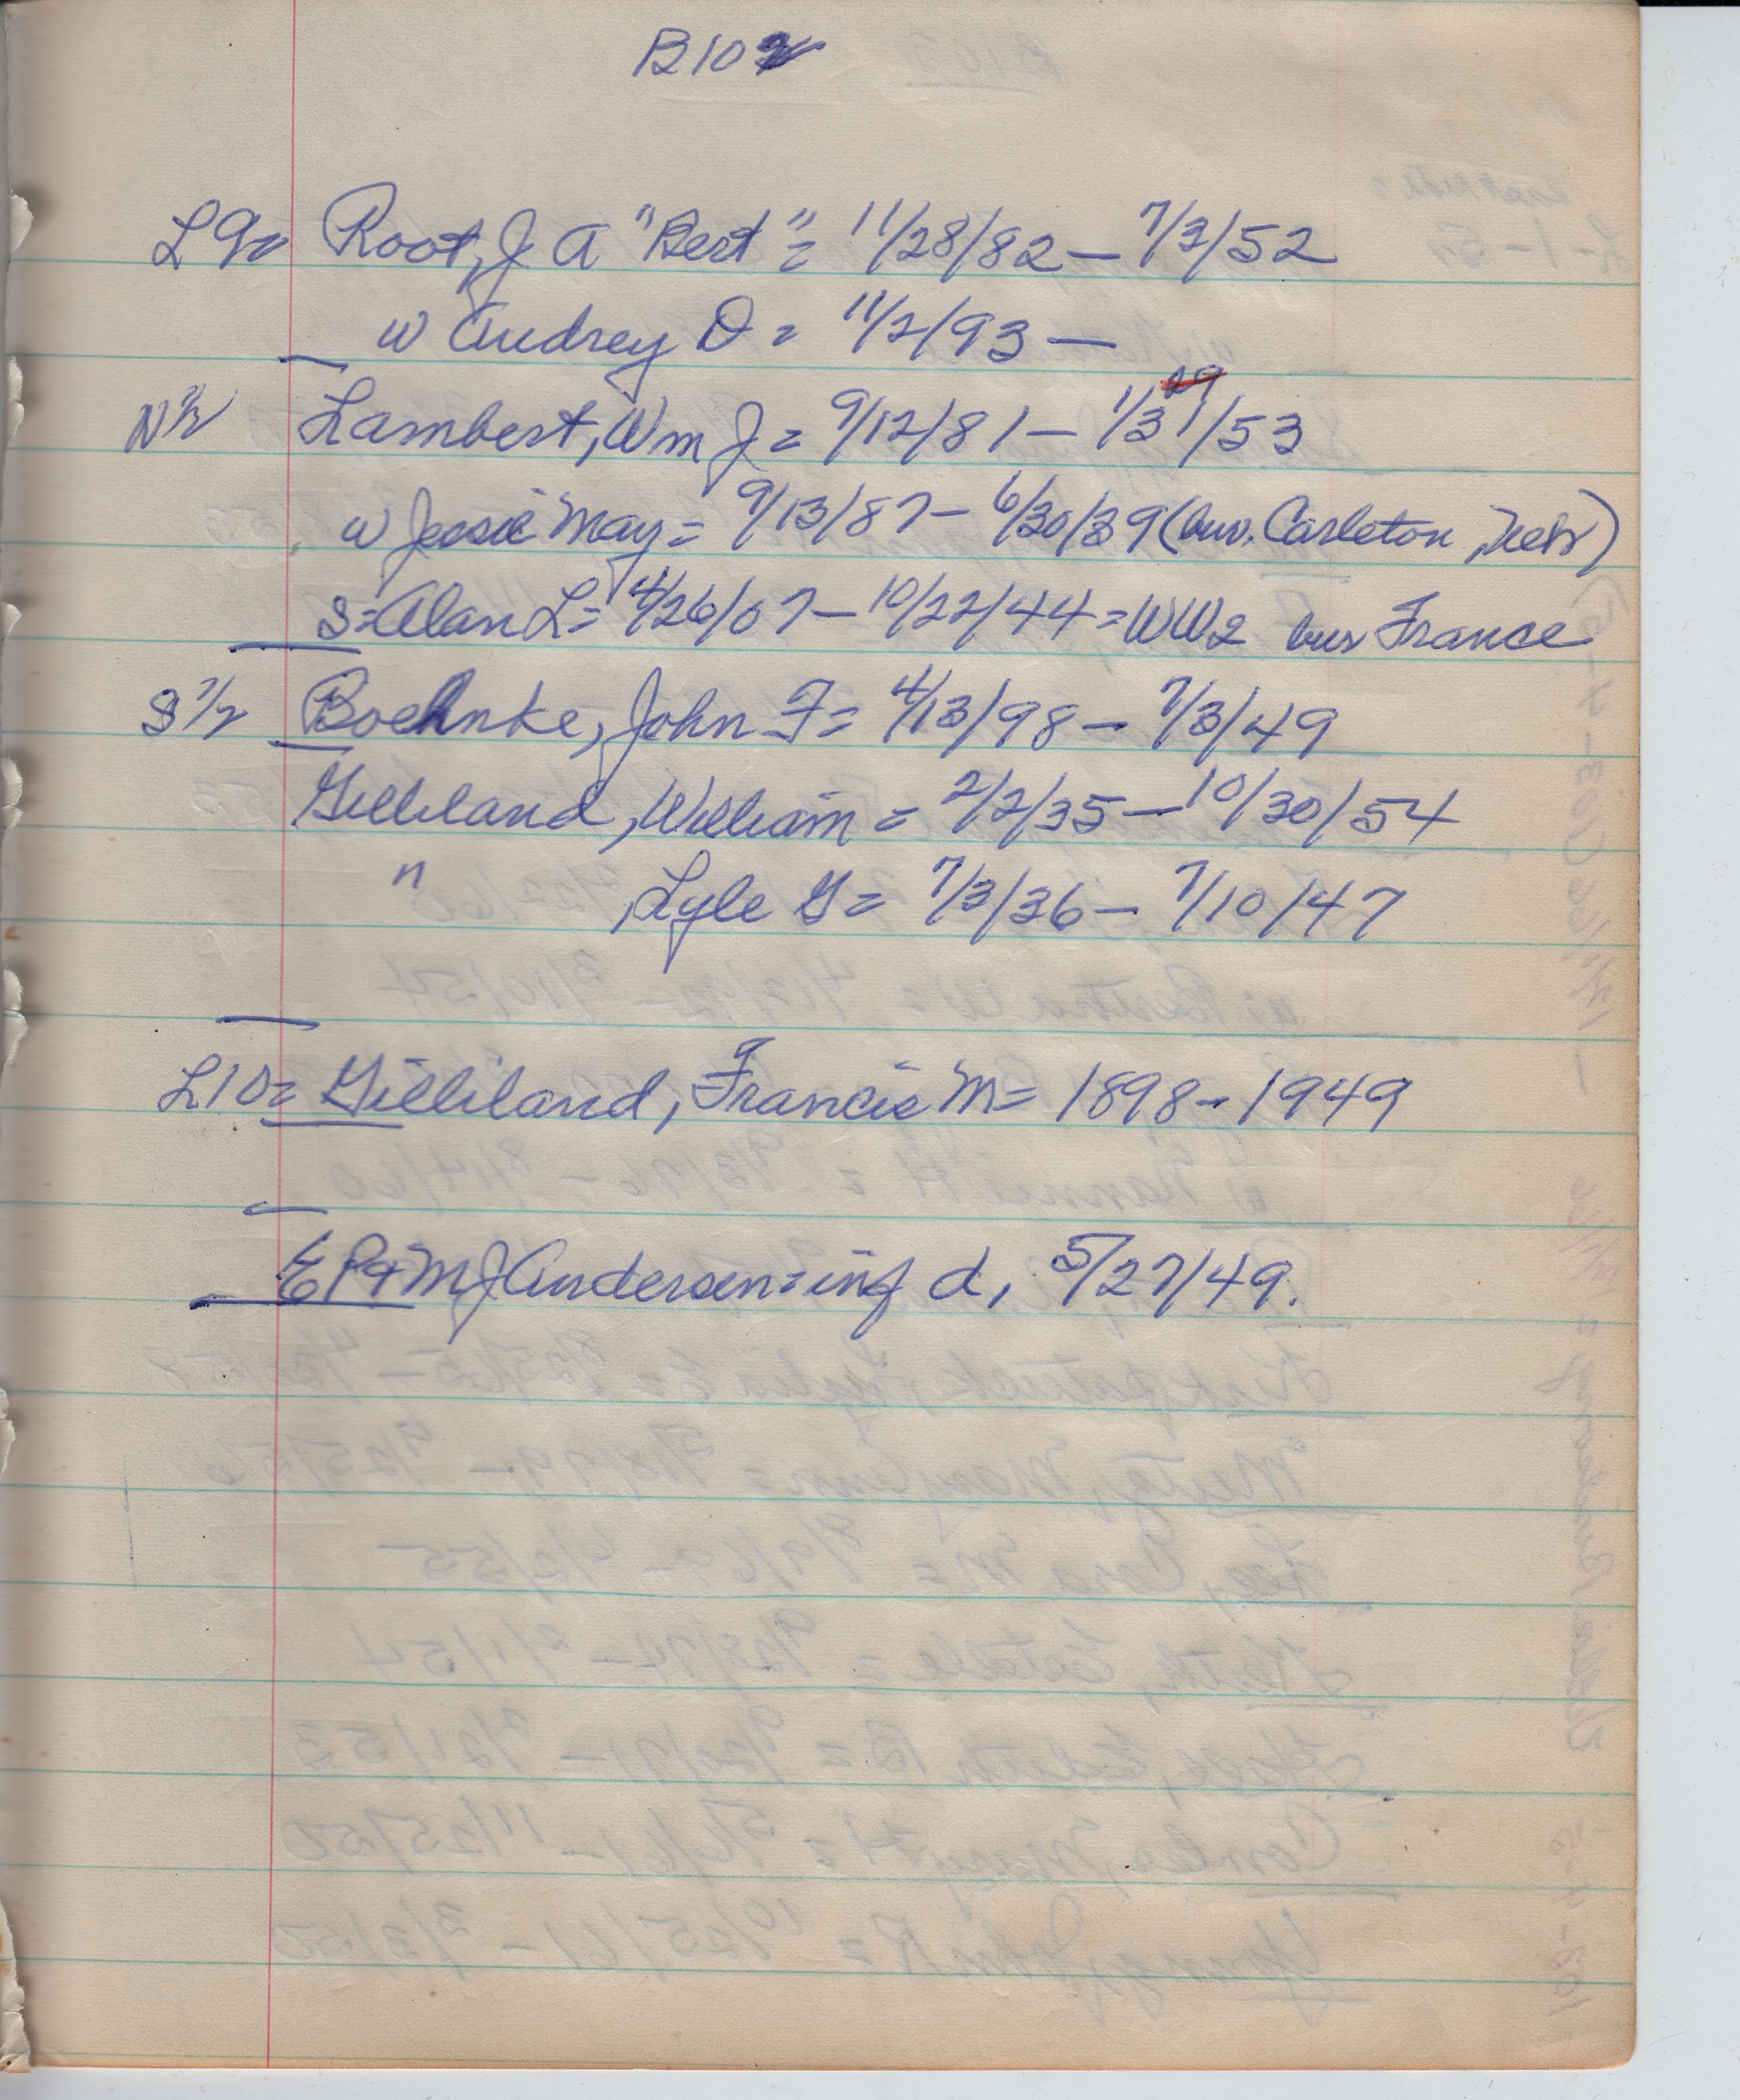 B102
L9= Root, J A "Bert" = 11/28/82 – 7/3/52
w Audrey D = 11/2/93 –
N½ Lambert, Wm J = 9/12/81 – 1/31/53
w Jessie May = 9/13/87 – 6/30/39 (bur. Carleton, Nebr)
S = Alan L = 4/26/07 – 10/22/44 = WW2 bur France
S½ Boehnke, John F = 4/13/98 – 7/3/49
Gilliland, William = 2/2/35 – 10/30/54
" , Lyle G = 7/3/36 – 7/10/47
L10= Gilliland, Francis M = 1898 – 1949
P + M J Andersen = inf d, 5/27/49.